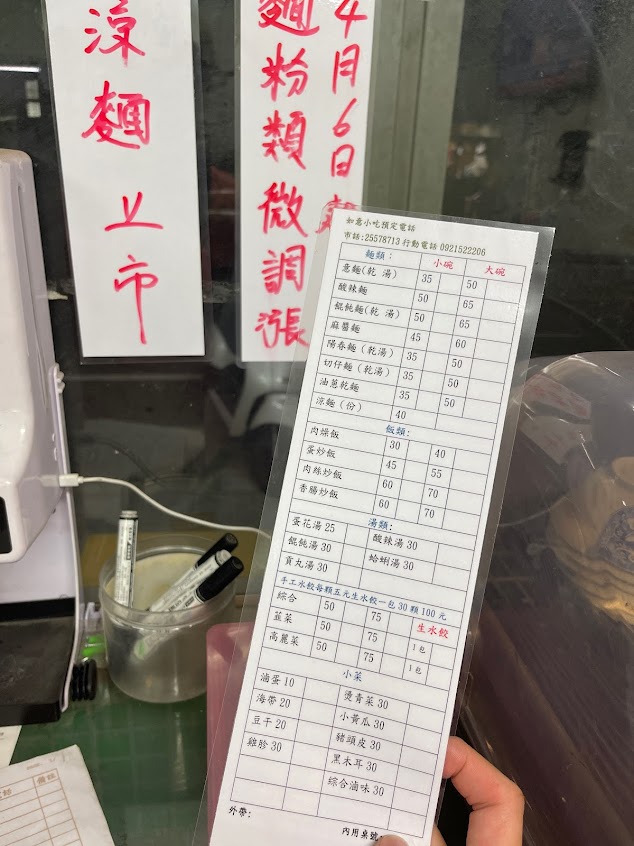 涼麵上市
4月6日
麵粉類微調漲
如意小吃預定電話
市話:25578713 行動電話 0921522206
麵類: 小碗 大碗
意麵(乾 湯) 35 50
酸辣麵 50 65
餛飩麵(乾 湯) 50 65
麻醬麵 45 60
陽春麵(乾湯) 35 50
切仔麵(乾湯) 35 50
油蔥乾麵 35 50
涼麵(份) 40
飯類:
肉燥飯 30 40
蛋炒飯 45 55
肉絲炒飯 60 70
香腸炒飯 60 70
湯類:
蛋花湯 25 酸辣湯 30
餛飩湯 30 蛤蜊湯 30
貢丸湯 30
手工水餃每顆五元生水餃一包 30 顆 100 元
綜合 50 75 生水餃
韮菜 50 75 1包
高麗菜 50 75 1包
小菜
滷蛋 10 燙青菜 30
海帶 20 小黃瓜 30
豆干 20 豬頭皮 30
雞胗 30 黑木耳 30
綜合滷味 30
外帶:
內用桌號: